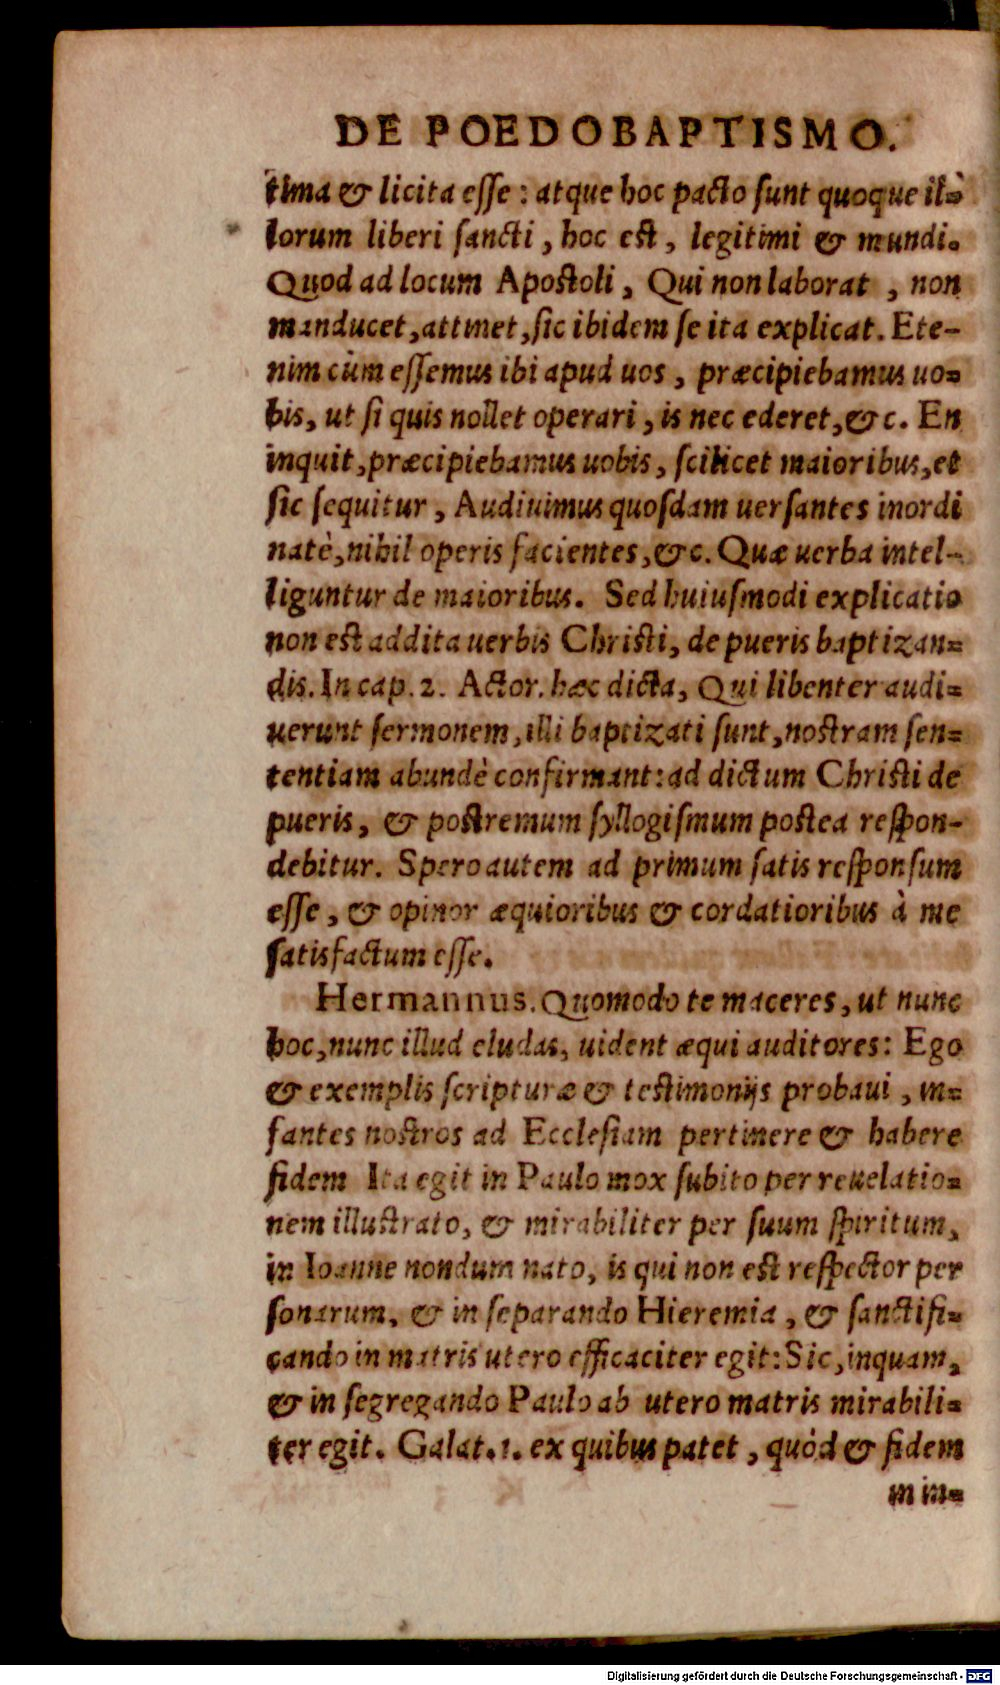 DE POEDOBAPTISMO.
tima & licita esse: atque hoc pacto sunt quoque il-
lorum liberi sancti, hoc est, legitimi & mundi.
Quod ad locum Apostoli, Qui non laborat, non
manducet, attinet, sic ibidem se ita explicat. Ete-
nim cùm essemus ibi apud uos, præcipiebamus uo-
bis, ut si quis nollet operari, is nec ederet, &c. En
inquit, præcipiebamus uobis, scilicet maioribus, et
sic sequitur, Audiuimus quosdam uersantes inordi
natè, nihil operis facientes, &c. Quæ uerba intel-
liguntur de maioribus. Sed huiusmodi explicatio
non est addita uerbis Christi, de pueris baptizan-
dis. In cap. 2. Actor. hæc dicta, Qui libenter audi-
uerunt sermonem, illi baptizati sunt, nostram sen-
tentiam abundè confirmant: ad dictum Christi de
pueris, & postremum syllogismum postea respon-
debitur. Spero autem ad primum satis responsum
esse, & opinor æquioribus & cordatioribus à me
satisfactum esse.
Hermannus. Quomodo te maceres, ut nunc
hoc, nunc illud eludas, uident æqui auditores: Ego
& exemplis scripturæ & testimonijs probaui, in-
fantes nostros ad Ecclesiam pertinere & habere
fidem Ita egit in Paulo mox subito per reuelatio-
nem illustrato, & mirabiliter per suum spiritum,
in Ioanne nondum nato, is qui non est respector per
sonarum, & in separando Hieremia, & sanctifi-
cando in matris utero efficaciter egit: Sic, inquam,
& in segregando Paulo ab utero matris mirabili-
ter egit. Galat. 1. ex quibus patet, quòd & fidem
in in-
Digitalisierung gefördert durch die Deutsche Forschungsgemeinschaft - DFG